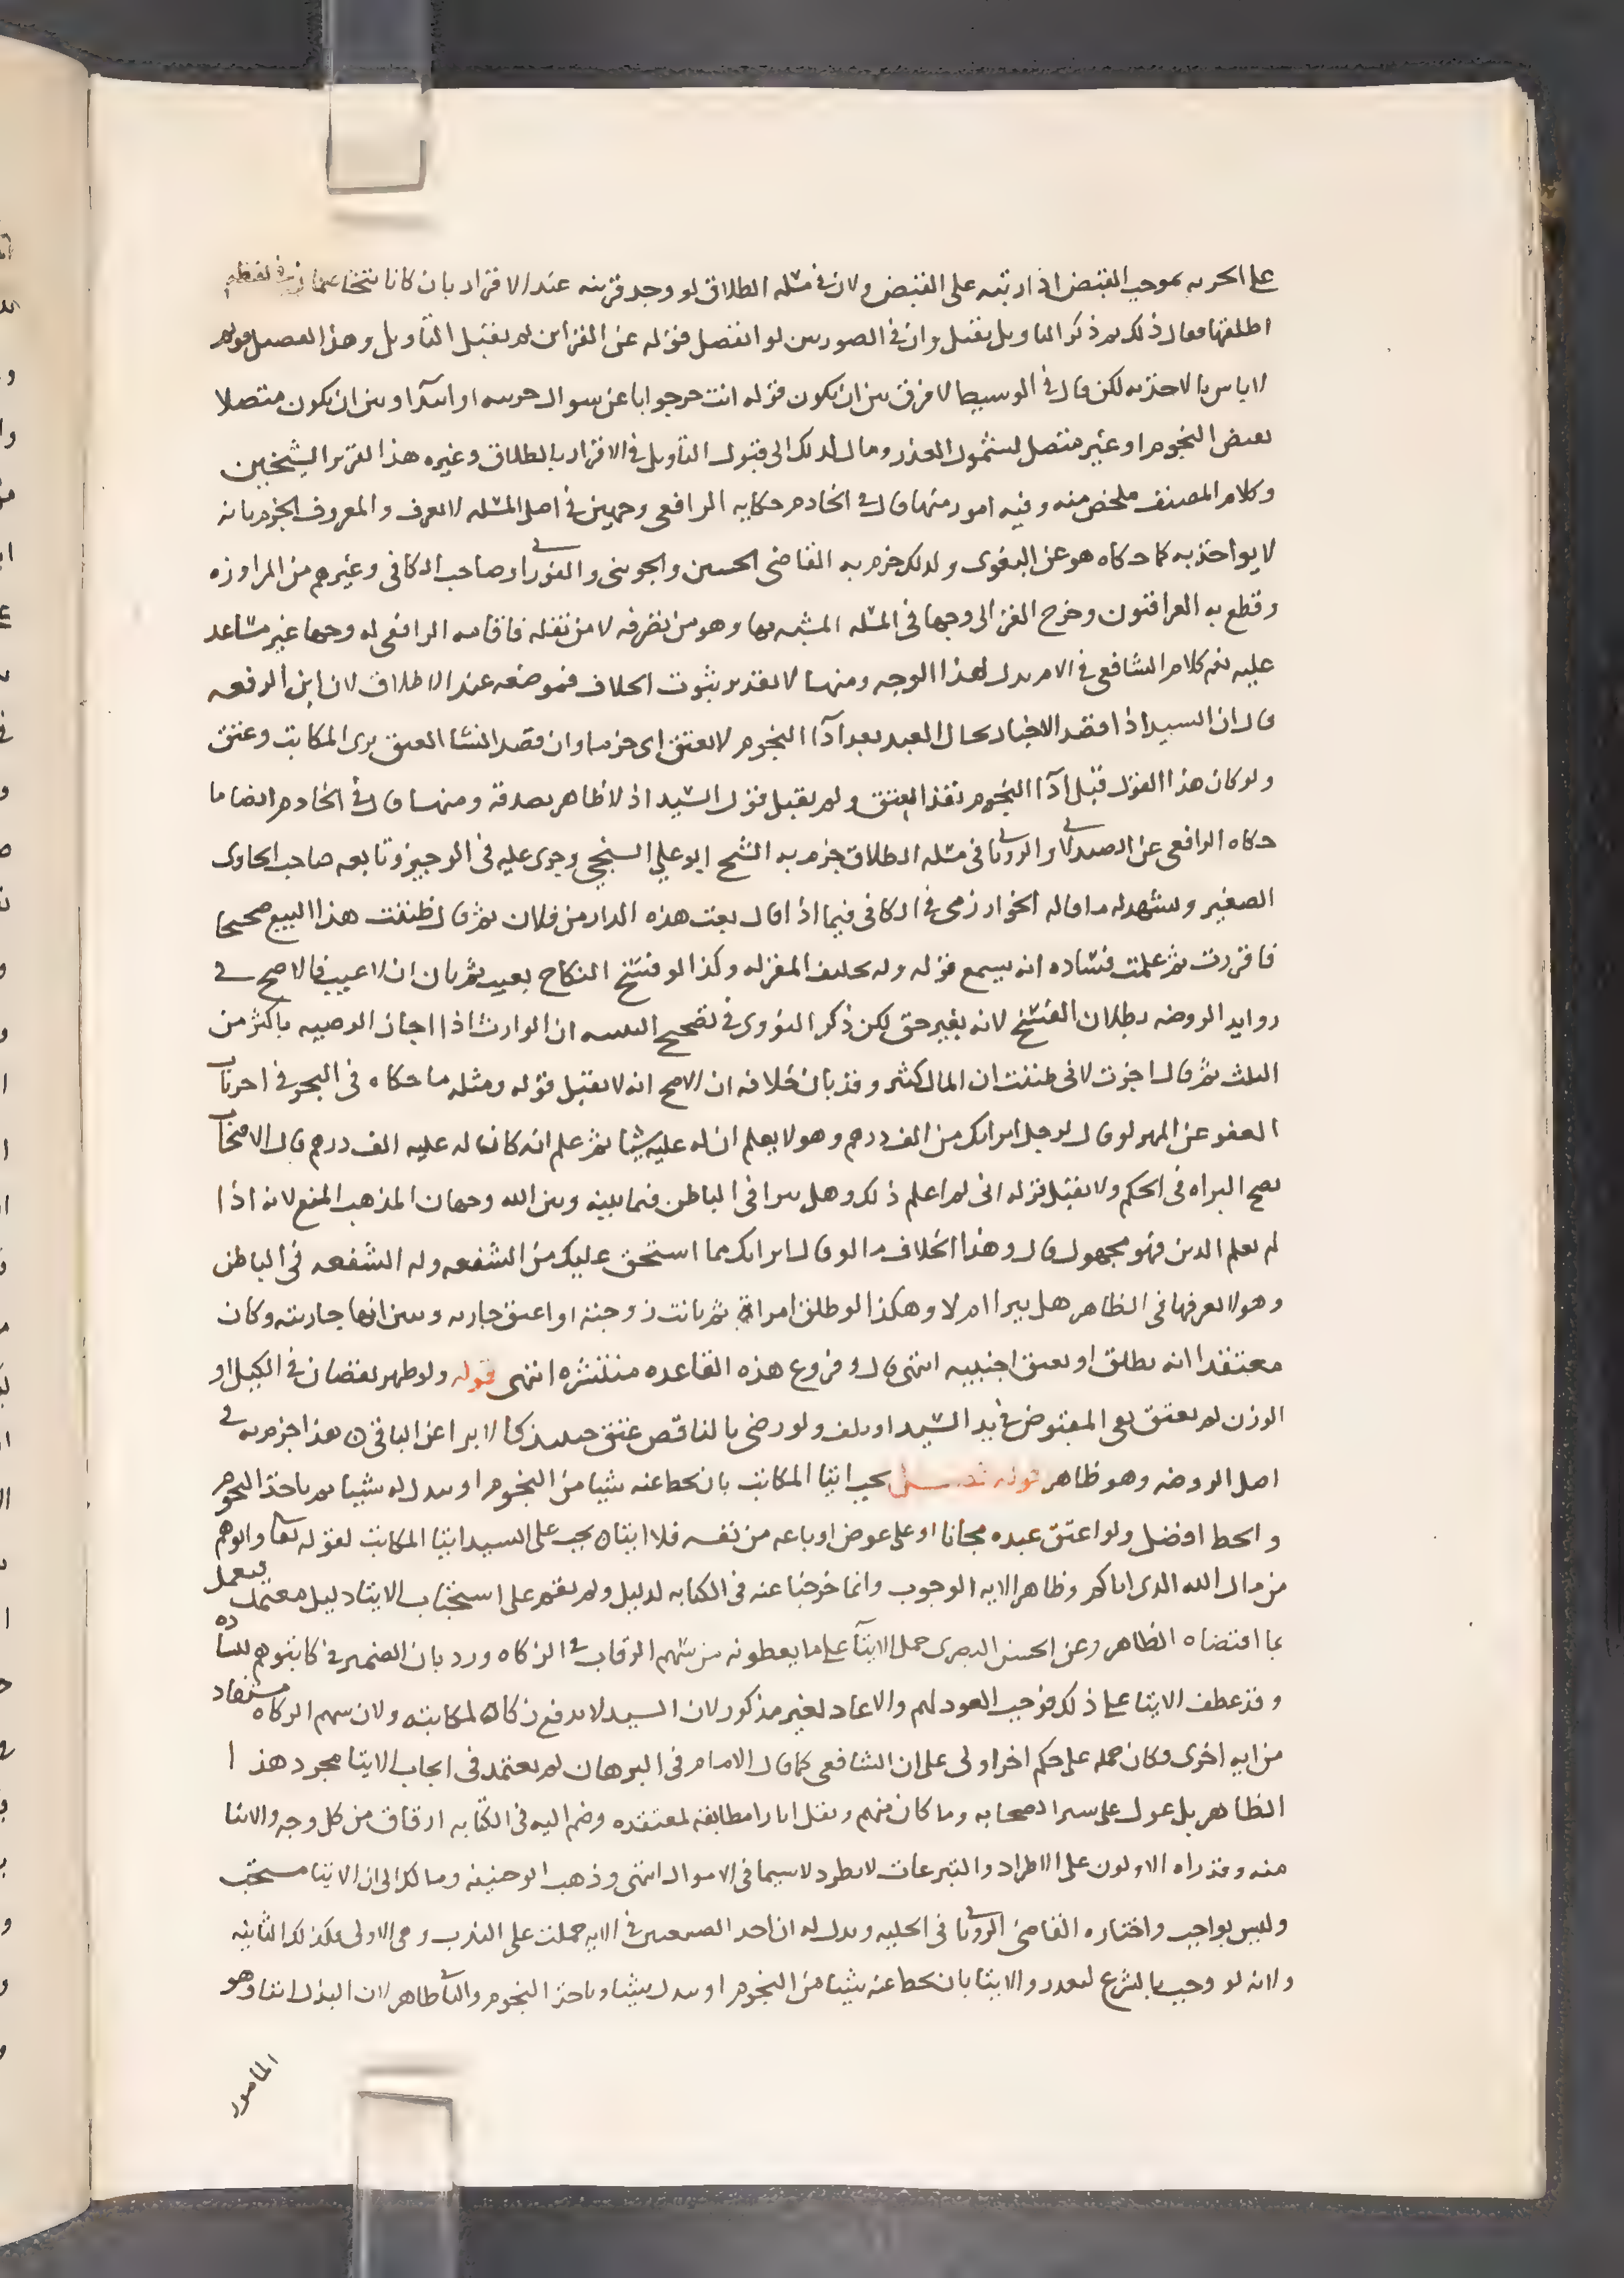 على الحريه بموجب القبض اذا رتبه على القبض ولان في مثله الطلاق لو وجد قرينه عند الاقرار بان كانا يتخاصمان في لفظه
اطلقها فقال ذلك ثم ذكر التاويل يقبل وان في الصورتين لو انفصل قوله عن القراين لم يقبل التأويل وهذا التفصيل قويم
لا باس بالاخذ به لكن قال في الوسيط لا فرق بين ان يكون قوله انت حر جوابا عن سوال حريته او ابتدآ او بين ان يكون متصلا
بعض النجوم او غير متصل لشمول العذر ومال كذلك الى قبول التأويل في الاقرار بالطلاق وغيره هذا تقرير الشيخين
وكلام المصنف ملخص منه وفيه امور منها قال في الخادم حكايه الرافعي وجهين في اصل المسله لا تعرف والمعروف الجزم بانه
لا يواخذ به كما حكاه هو عن البغوى ولذلك جزم به القاضى الحسين والجوينى والفوراني وصاحب الكافى وغيرهم من المراوزه
وقطع به العراقيون وخرج الغزالى وجها فى المسله المشبه بها وهو من تصرفه لا من نقله فاقامه الرافعى له وجها غير مساعد
عليه نعم كلام الشافعى فى الام يدل لهذا الوجه ومنها لا تقدير ثبوت الخلاف فموضعه عند الاطلاق لان ابن الرفعه
قال ان السيد اذا قصد الاخبار بحال العبد بعد آدا النجوم لا يعتق اى جزما وان قصد انشا العتق برى المكاتب وعتق
ولو كان هذا القول قبل آدا النجوم نفذ العتق ولم يقبل قول السيد اذ لا ظاهر يصدقه ومنها قال في الخادم ايضا ما
حكاه الرافعى عن الصيدلاني والرويانى فى مسله الطلاق جزم به الشيخ ابو علي السنجي وجرى عليه فى الوجيز وتابعه صاحب الحاوى
الصغير ويشهد له ما قاله الخوارزمى فى الكافى فيما اذا قال بعت هذه الدار من فلان ثم قال ظننت هذا البيع صحيحا
فاقررت ثم علمت فساده انه يسمع قوله وله تحليف المقر له وكذا لو فسخ النكاح بعيب ثم بان ان لا عيب فالاصح في
زوايد الروضه بطلان الفسخ لانه بغير حق لكن ذكر النووى فى تصحيح التنبيه ان الوارث اذا اجاز الوصيه باكثر من
الثلث ثم قال اجزت لانى ظننت ان المال كثير وقد بان خلافه ان الاصح انه لا يقبل قوله ومثله ما حكاه فى البحر في اخر باب
العفو عن المهر لو قال لرجل ابراتك من الف درهم وهو لا يعلم ان له عليه شيئا ثم علم انه كان له عليه الف درهم قال الاصحاب
تصح البراه فى الحكم ولا يقبل قوله انى لم اعلم ذلك وهل يبرا فى الباطن فيما بينه وبين الله وجهان المذهب المنع لانه اذا
لم يعلم الدين فهو مجهول قال وهذا الخلاف ما لو قال ابراتك مما استحق عليك من الشفعه وله الشفعه فى الباطن
وهو لا يعرفها فى الظاهر هل يبرا ام لا وهكذا لو طلق امراة ثم بانت زوجته او اعتق جاريه وتبين انها جاريته وكان
معتقدا انه يطلق او يعتق اجنبيه انتهى قال وفروع هذه القاعده منتشره انتهى قوله ولو ظهر نقصان فى الكيل او
الوزن لم يعتق بقى المقبوض في يد السيد او تلف ولو رضى بالناقص عتق حينيذ كالابرا عن الباقى ن هذا جزم به في
اصل الروضه وهو ظاهر قوله فصل يجب ايتا المكاتب بان يحط عنه شيئا من النجوم او يبدل له شيئا ثم ياخذ النجوم
والحط افضل ولو اعتق عبده مجانا او على عوض او باعه من نفسه فلا ايتا ن يجب على السيد ايتا المكاتب لقوله تعالى واتوهم
من مال الله الذى اتاكم وظاهر الايه الوجوب وانما خرجنا عنه فى الكتابه لدليل ولم يقم على استحباب الايتا دليل معتمد فيعمل
بما اقتضاه الظاهر وعن الحسن البصرى حمل الايتآ على ما يعطونه من سهم الرقاب في الزكاه ورد بان الضمير في كاتبوهم للساده
وقد عطف الايتا على ذلك فوجب العود لهم والا عاد لغير مذكور لان السيد لا يدفع زكاه لمكاتبه ولان سهم الزكاه مستفاد
من ايه اخرى فكان حمله على حكم اخر اولى على ان الشافعى كما قال الامام فى البرهان لم يعتمد فى ايجاب الايتا مجرد هذا
الظاهر بل عول على سير الصحابه وما كان منهم ونقل اثارا مطابقه لمعتقده وضم اليه فى الكتابه ارقاق من كل وجه والايتا
منه وقد راه الاولون على الاطراد والتبرعات لا تطرد لا سيما فى الاموال انتهى وذهب ابو حنيفه ومالك الى ان الايتا مستحب
وليس بواجب واختاره القاضى الرويانى فى الحليه ويدل له ان احد الصيغتين فى الايه حملت على الندب وهى الاولى فكذلك الثانيه
ولانه لو وجب بالشرع لتقدر والايتا بان يحط عنه شيئا من النجوم او يبدل شيئا وياخذ النجوم والثانى ظاهر لان البذل ايتا وهو
المامور